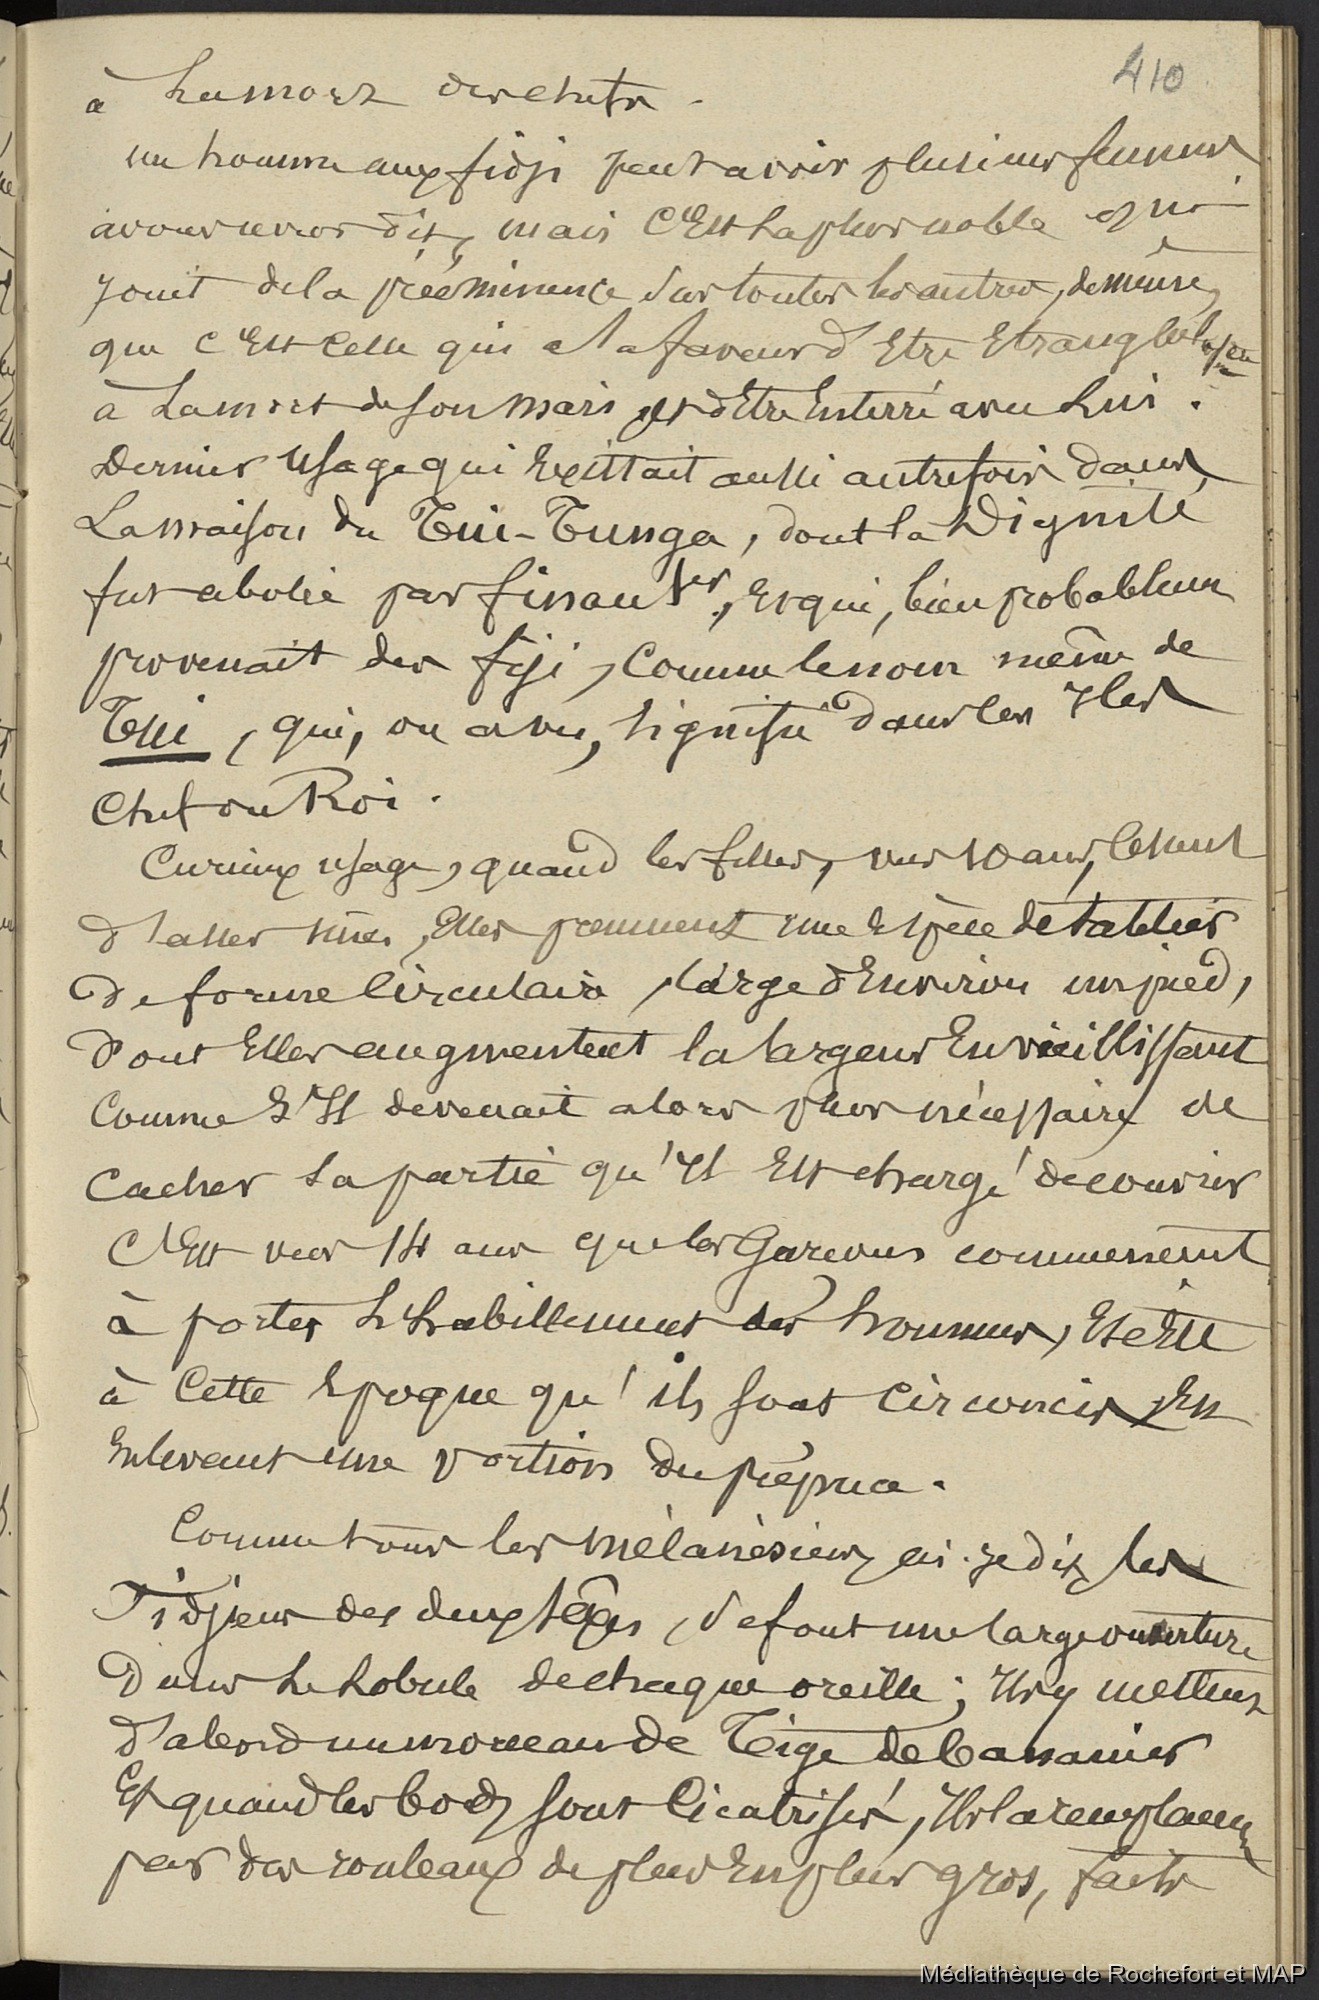 410
à La mort des chefs.
un homme aux fidji peut avoir plusieurs femmes
avons nous dit, mais c'Est la plus noble qui
jouit de la prééminence sur toutes les autres, de même
que c'Est celle qui a la faveur d'Etre Etranglée
à La mort de son mari et d'Etre Enterré avec Lui.
Dernier Usage qui Existtait aussi autrefois dans
La maison du Tui-Tunga, dont la Dignité
fut abolie par finau 1er, Et qui, bien probablement
provenait des fiji, Comme le nom même de
Tui, qui, on a vu, signifie dans les Iles
Chef ou Roi.
Curieux usage, quand les filles, vers 10 ans, Cessent
d'aller nues, Elles prennent une Espèce de tablier
De forme Circulaire, large d'Environ un pied,
dont Elles augmentent la largeur En vieillissant
Comme s'Il devenait alors plus nécessaire de
Cacher la partie qu'Il Est chargé de couvrir
C'Est vers 14 ans que les Garcons commencent
à porter L'habillement des hommes, Et c'Est
à Cette Epoque qu'ils sont Circoncis En
Enlevant une portion du prépuce.
Comme tous les mélanésiens, ai-je dit, les
Fidjiens des deux sexes, se font une large ouverture
Dans Le Lobule de chaque oreille; Ils y mettent
d'abord un morceau de Tige de Bananier
Et quand les bords sont Cicatrisés, Ils la remplacent
par des rouleaux de plus En plus gros, faits
Médiathèque de Rochefort et MAP